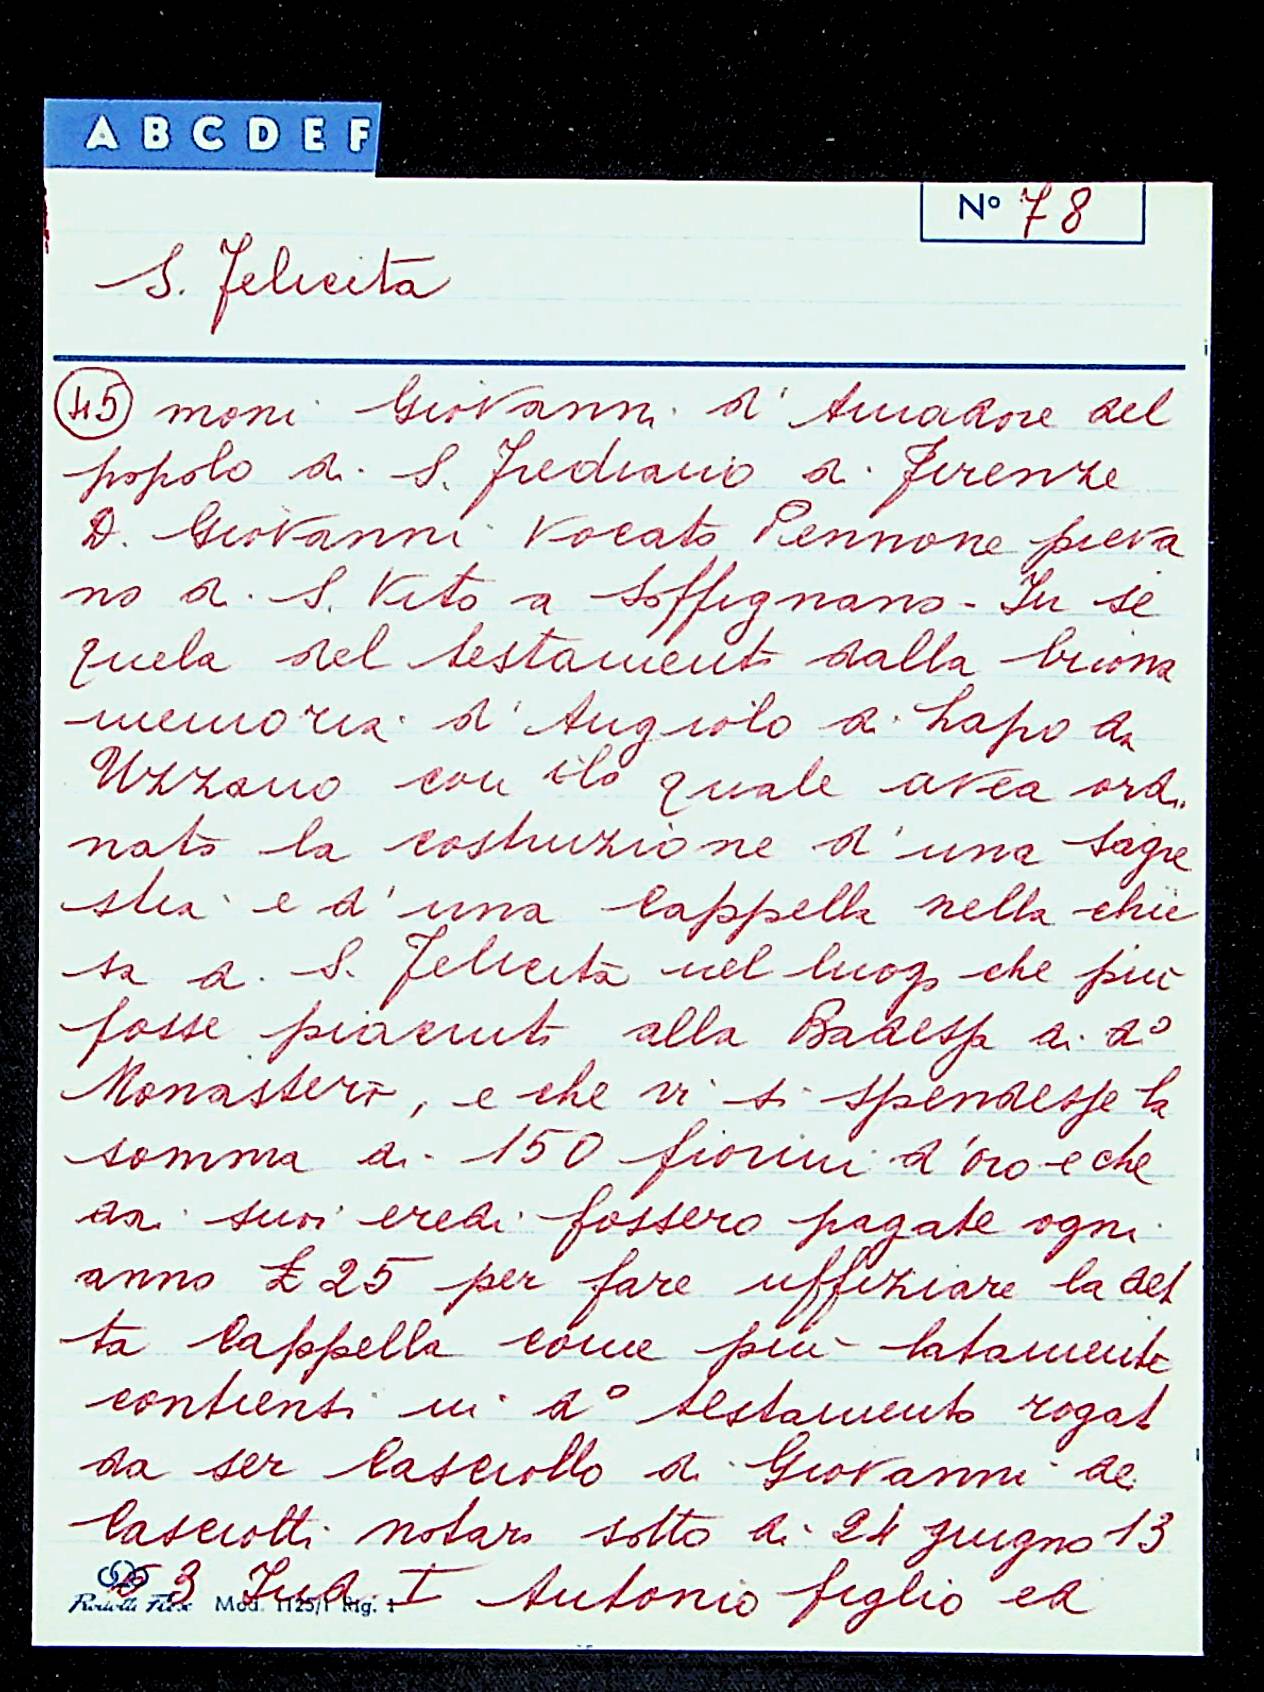 A B C D E F
Nº 78
S. Felicita
45 moni Giovanni d' Amadore del
popolo di S. Frediano di Firenze
D. Giovanni vocato Pennone pieva
no di S. Vito a Soffignano - In se
quela del testamento dalla buona
memoria d' Angiolo di Lapo da
Uzzano con ilo quale avea ordi
nato la costruzione d' una sagre
stia e d' una Cappella nella chie
sa di S. Felicita nel luogo che più
fosse piaciuto alla Badessa di dº
Monastero, e che vi si spendesse la
somma di 150 fiorini d'oro e che
dai suoi eredi fossero pagate ogni
anno £ 25 per fare uffiziare la det
ta Cappella come più latamente
contiensi in dº testamento rogat
da ser Casciotto di Giovanni de
Casciotti notaro sotto di 24 giugno 13
63 Ind. I Antonio figlio ed
Mod. 1125/1 Rig. 1